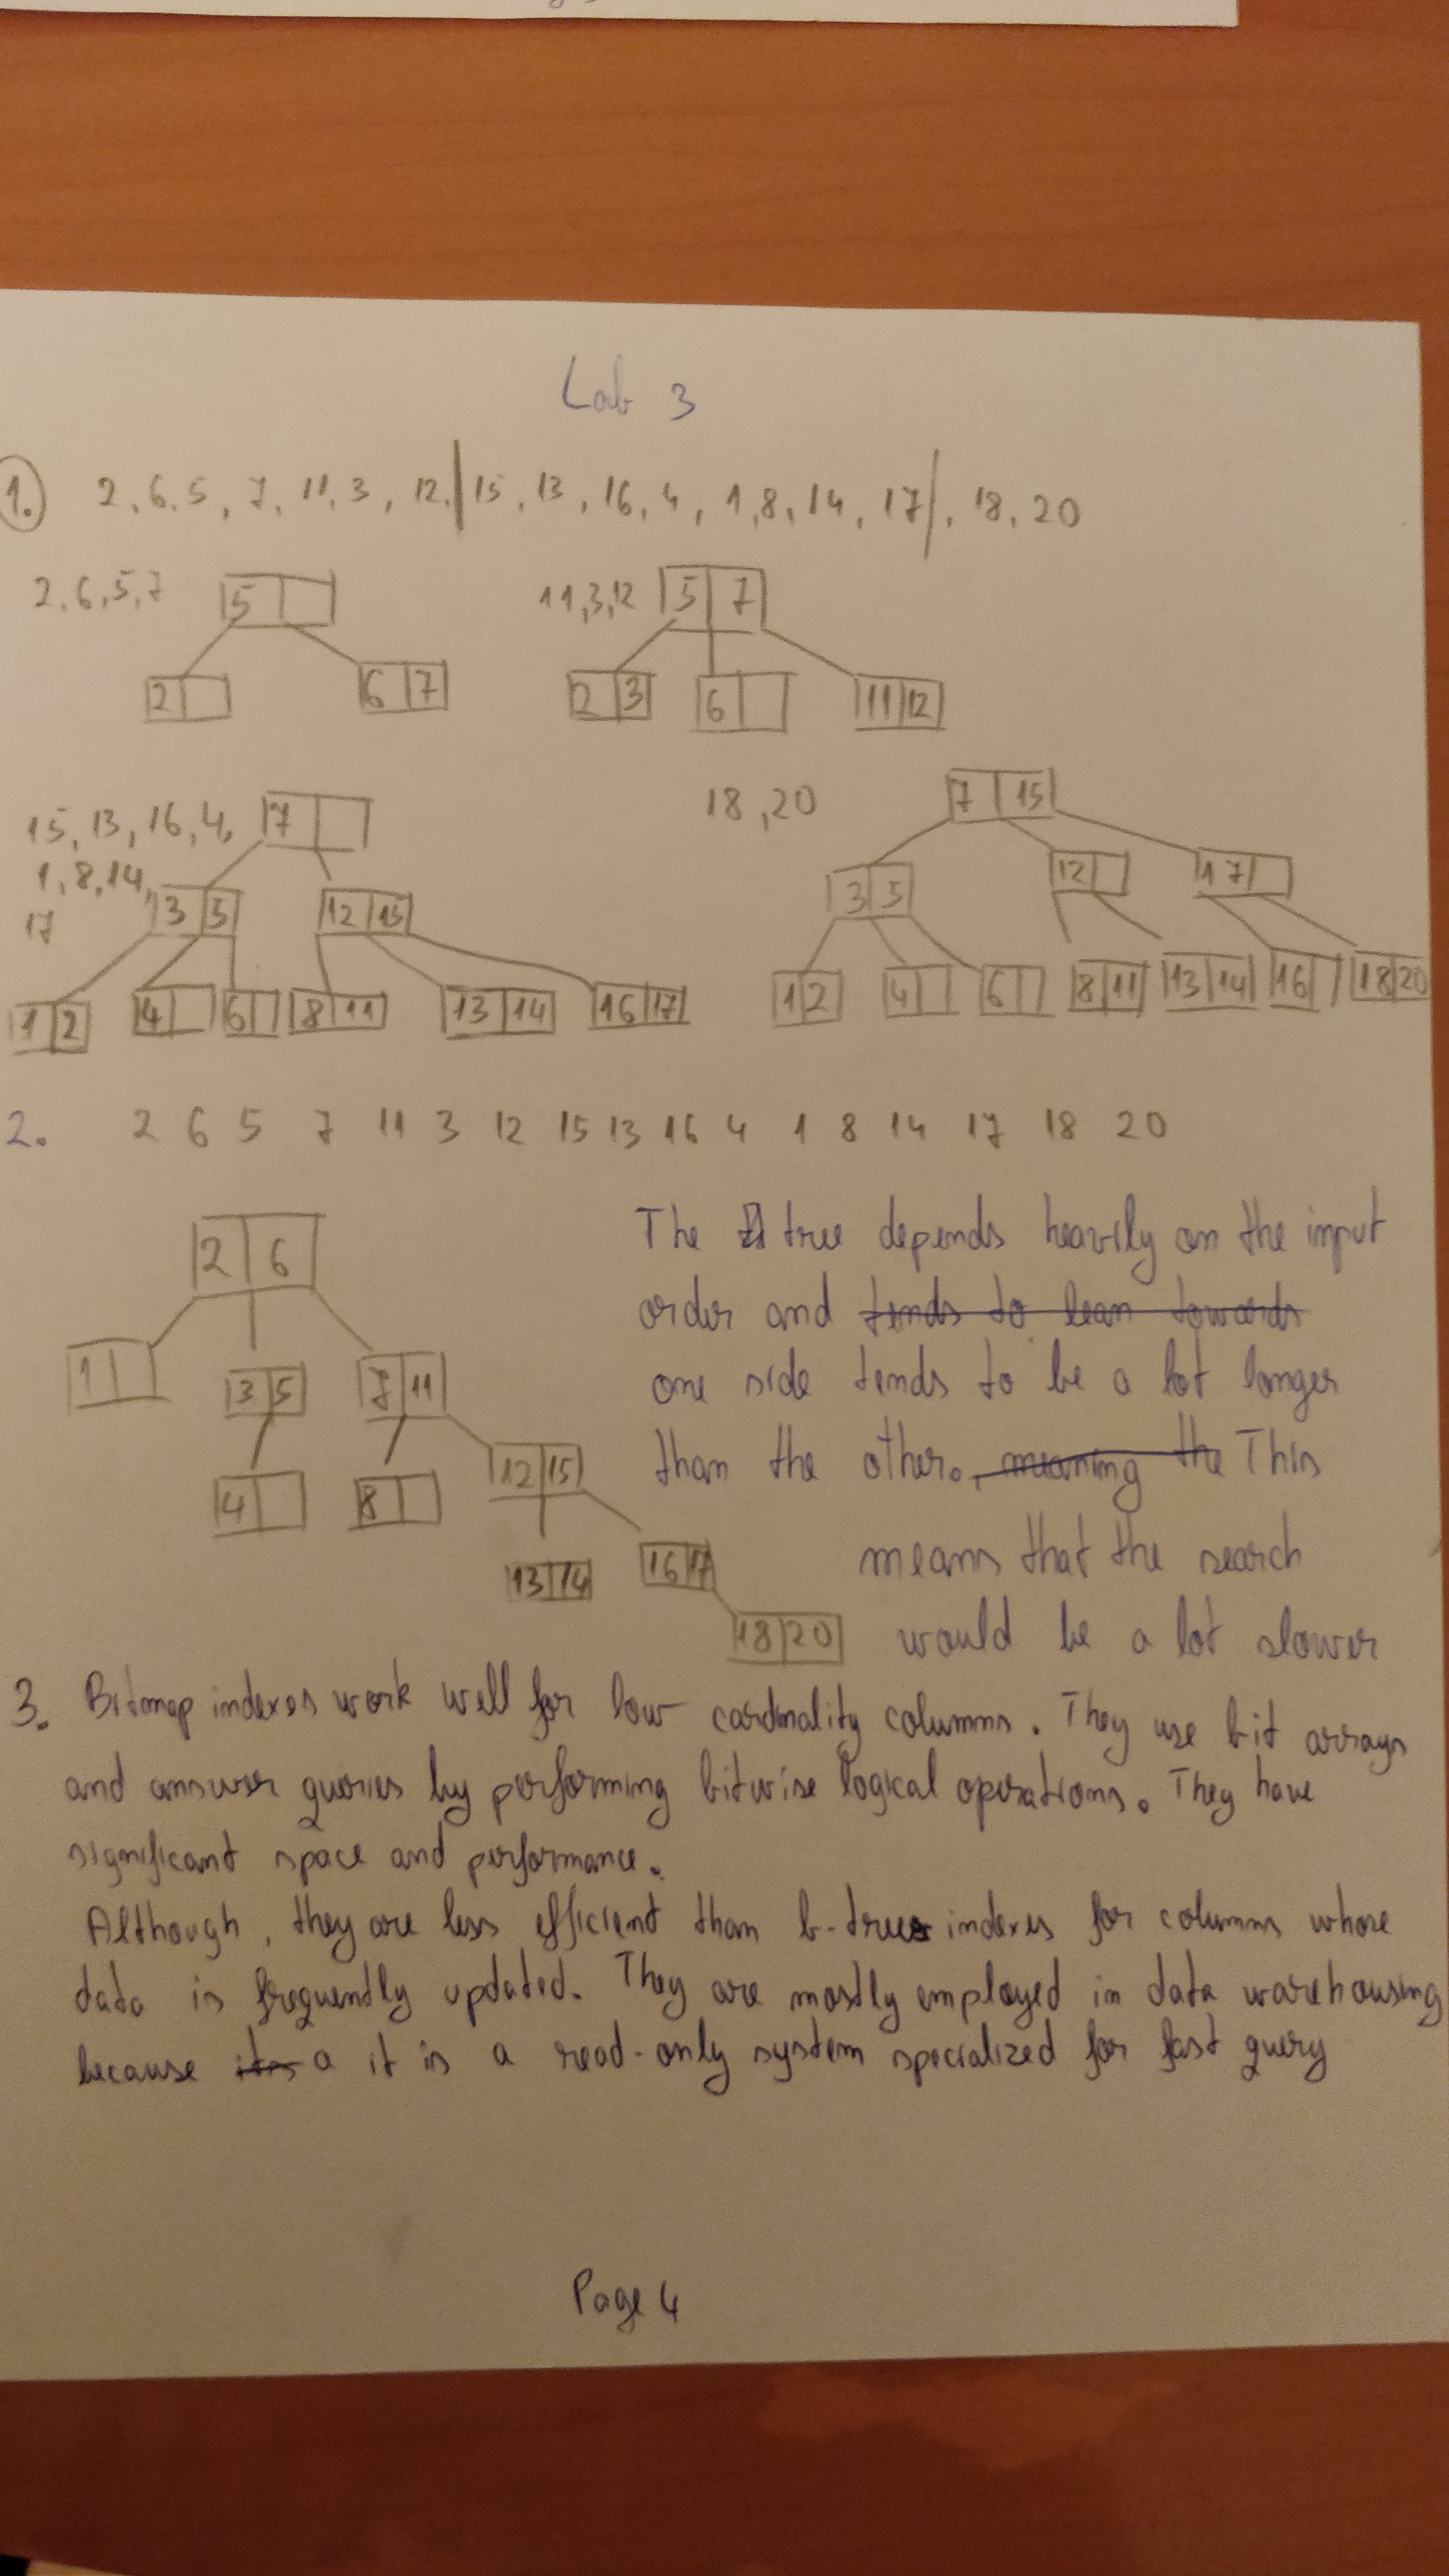 Lab 3
1. 2, 6, 5, 7, 11, 3, 12, | 15, 13, 16, 4, 1, 8, 14, 17 |, 18, 20
2, 6, 5, 7
5
2
6 7
11, 3, 12
5 7
2 3
6
11 12
15, 13, 16, 4,
1, 8, 14,
17
7
3 5
12 15
1 2
4
6
8 11
13 14
16 17
18, 20
7 15
3 5
12
17
1 2
4
6
8 11
13 14
16
18 20
2. 2 6 5 7 11 3 12 15 13 16 4 1 8 14 17 18 20
2 6
1
3 5
7 11
4
8
12 15
13 14
16 17
18 20
The tree depends heavily on the input
order and tends to lean towards
one side tends to be a lot longer
than the other. meaning the This
means that the search
would be a lot slower
3. Bitmap indexes work well for low cardinality columns. They use bit arrays
and answer queries by performing bitwise logical operations. They have
significant space and performance.
Although, they are less efficient than b-trees indexes for columns whose
data is frequently updated. They are mostly employed in data warehousing
because its a it is a read-only system specialized for fast query
Page 4